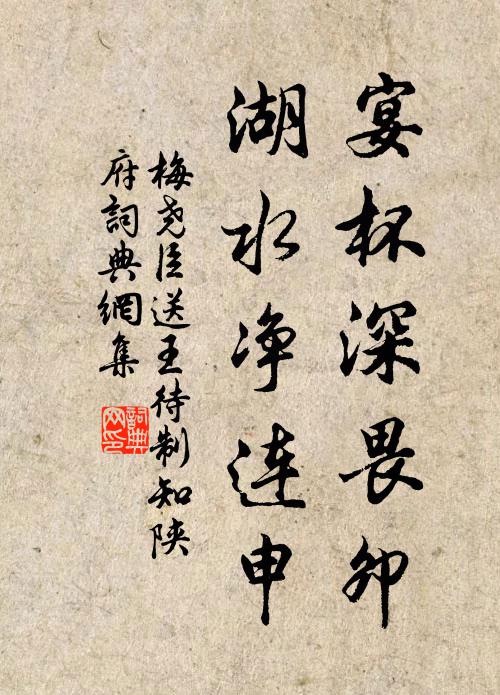 宴杯深畏卯
湖水净連申
梅尧臣送王待制知陕
府詞典網集
詞典
网印